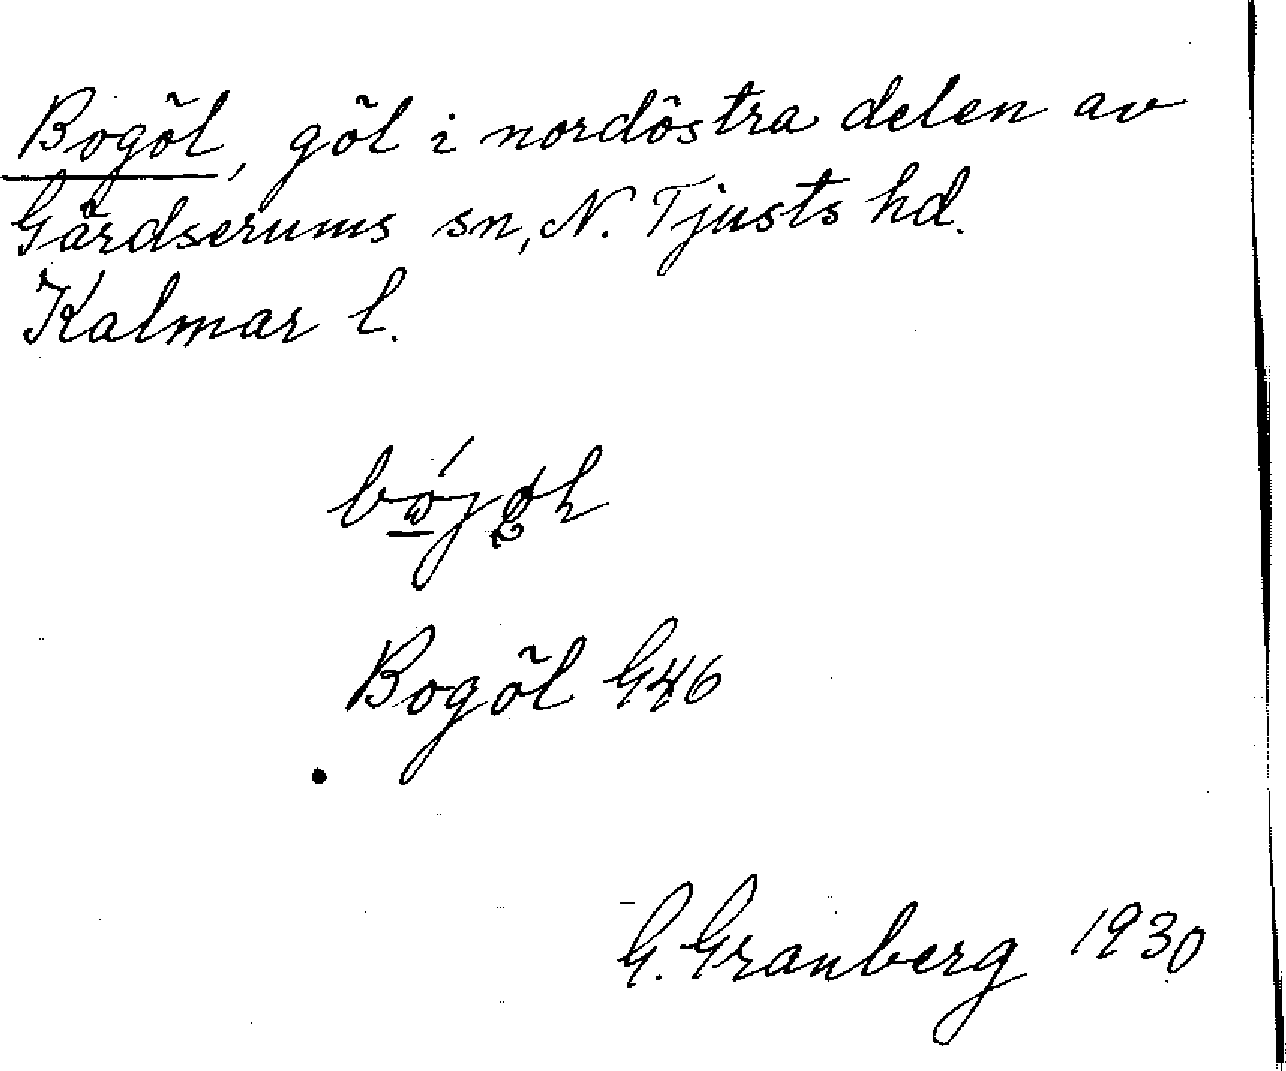 Bogöl, göl i nordöstra delen av
Gärdserums sn, N. Tjusts hd.
Kalmar l.
Bogöl
G. Granberg 1930